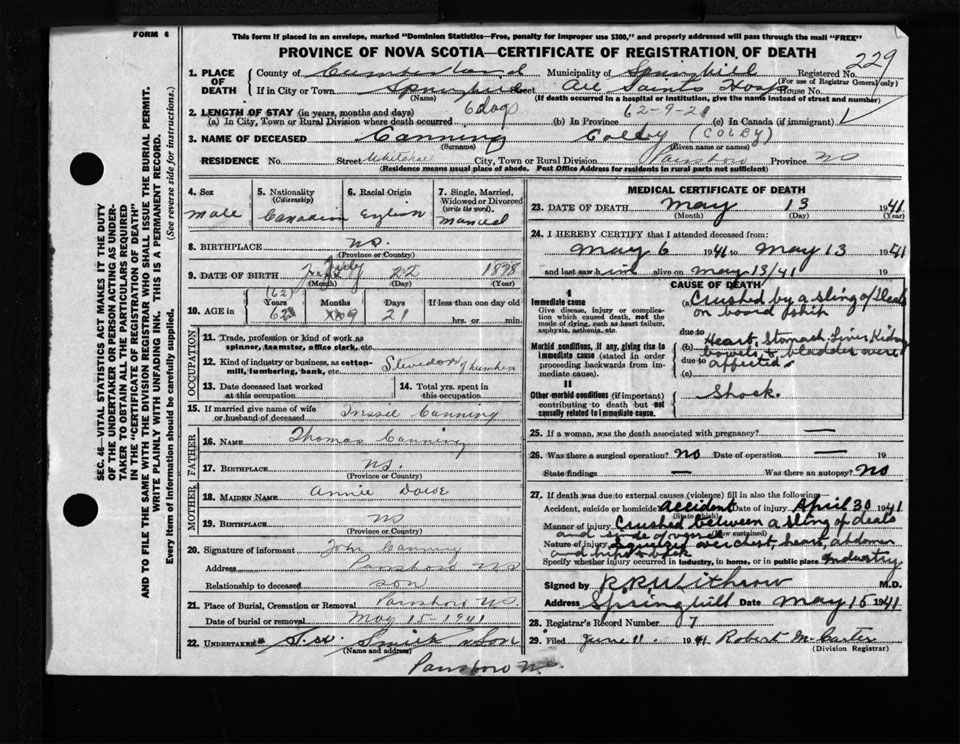 FORM 6
This form if placed in an envelope, marked "Dominion Statistics—Free, penalty for improper use $300," and properly addressed will pass through the mail "FREE"
PROVINCE OF NOVA SCOTIA—CERTIFICATE OF REGISTRATION OF DEATH
229
1. PLACE OF DEATH County of Cumberland Municipality of Springhill Registered No. (For use of Registrar General only)
If in City or Town Springhill (Name) Street All Saints Hosp House No.
(If death occurred in a hospital or institution, give the name instead of street and number)
2. LENGTH OF STAY (in years, months and days)
(a) In City, Town or Rural Division where death occurred 6 days (b) In Province 62-9-21 (c) In Canada (if immigrant)
3. NAME OF DECEASED Canning (Surname) Colby (COLBY) (Given name or names)
RESIDENCE No. Street Whitehall City, Town or Rural Division Parrsboro Province NS
(Residence means usual place of abode. Post Office Address for residents in rural parts not sufficient)
4. Sex Male
5. Nationality (Citizenship) Canadian
6. Racial Origin English
7. Single, Married, Widowed or Divorced (write the word) Married
8. BIRTHPLACE NS. (Province or Country)
9. DATE OF BIRTH July (Month) 22 (Day) 1878 (Year)
10. AGE in (62) Years 62 Months 9 Days 21 If less than one day old hrs. or min.
OCCUPATION
11. Trade, profession or kind of work as spinner, teamster, office clerk, etc.
12. Kind of industry or business, as cotton-mill, lumbering, bank, etc. Stevedore
13. Date deceased last worked at this occupation
14. Total yrs. spent in this occupation
15. If married give name of wife or husband of deceased Canning
FATHER
16. NAME Thomas Canning
17. BIRTHPLACE NS. (Province or Country)
MOTHER
18. MAIDEN NAME Annie Dowe
19. BIRTHPLACE NS (Province or Country)
20. Signature of informant John Canning
Address Parrsboro NS
Relationship to deceased son
21. Place of Burial, Cremation or Removal Parrsboro NS.
Date of burial or removal May 15-1941
22. UNDERTAKER Smith & Son
(Name and address)
Parrsboro NS.
MEDICAL CERTIFICATE OF DEATH
23. DATE OF DEATH May (Month) 13 (Day) 1941 (Year)
24. I HEREBY CERTIFY that I attended deceased from:
May 6 1941 to May 13 1941
and last saw him alive on May 13/41 19
CAUSE OF DEATH
I
Immediate cause
Give disease, injury or complication which caused death, not the mode of dying, such as heart failure, asphyxia, asthenia, etc.
(a) Crushed by a sling of deals on board ship
due to
Morbid conditions, if any, giving rise to immediate cause (stated in order proceeding backwards from immediate cause).
(b) Heart, Stomach, Liver, Kidney bowels & bladder were affected
due to
(c)
II
Other morbid conditions (if important) contributing to death but not causally related to immediate cause.
Shock.
25. If a woman, was the death associated with pregnancy? —
26. Was there a surgical operation? no Date of operation — 19
State findings — Was there an autopsy? No
27. If death was due to external causes (violence) fill in also the following
Accident, suicide or homicide? Accident (State which) Date of injury April 30 1941
Manner of injury Crushed between a sling of deals and side of vessel (How sustained)
Nature of injury over chest, heart, abdomen and hips & back
Specify whether injury occurred in industry, in home, or in public place Industry
Signed by R R Withrow M.D.
Address Springhill Date May 15 1941
28. Registrar's Record Number 7
29. Filed June 11. 1941 Robert McCarter
(Division Registrar)
SEC. 46—VITAL STATISTICS ACT MAKES IT THE DUTY OF THE UNDERTAKER OR PERSON ACTING AS UNDERTAKER TO OBTAIN ALL THE PARTICULARS REQUIRED IN THE "CERTIFICATE OF REGISTRATION OF DEATH" AND TO FILE THE SAME WITH THE DIVISION REGISTRAR WHO SHALL ISSUE THE BURIAL PERMIT.
WRITE PLAINLY WITH UNFADING INK. THIS IS A PERMANENT RECORD.
Every item of information should be carefully supplied. (See reverse side for instructions.)